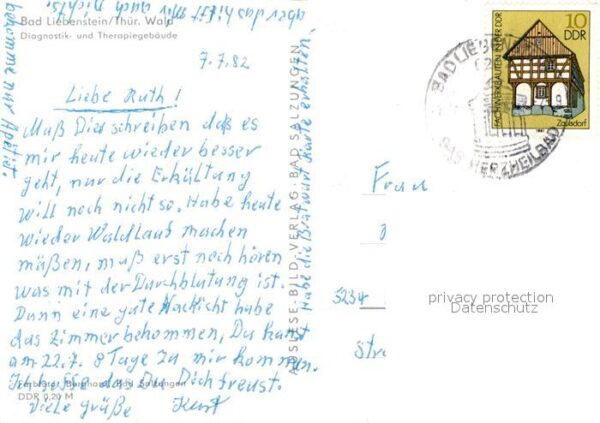 Bad Liebenstein/Thür. Wald
Diagnostik- und Therapiegebäude
7.7.82
Liebe Ruth!
Muß Dir schreiben daß es
mir heute wieder besser
geht, nur die Erkältung
will noch nicht so. Habe heute
wieder Waldlauf machen
müßen, muß erst noch hören
was mit der Durchblutung ist.
Dann eine gute Nachricht habe
das Zimmer bekommen, Du kannst
am 22.7. 8 Tage zu mir kommen.
Ich hoffe das Du Dich freust.
Viele grüße Kurt
Habe die Bratwurt Karte erhalten,
aber das hilft mir auch nichts
bekomme nur Apetist.
DDR 0,20 M
AUSLESE-BILD-VERLAG·BAD SALZUNGEN
10
DDR
FACHWERKBAUTEN IN DER DDR
Zaulsdorf
1981
BAD LIEBEN
DAS HERZHEILBAD
Frau
5234
Str
privacy protection
Datenschutz